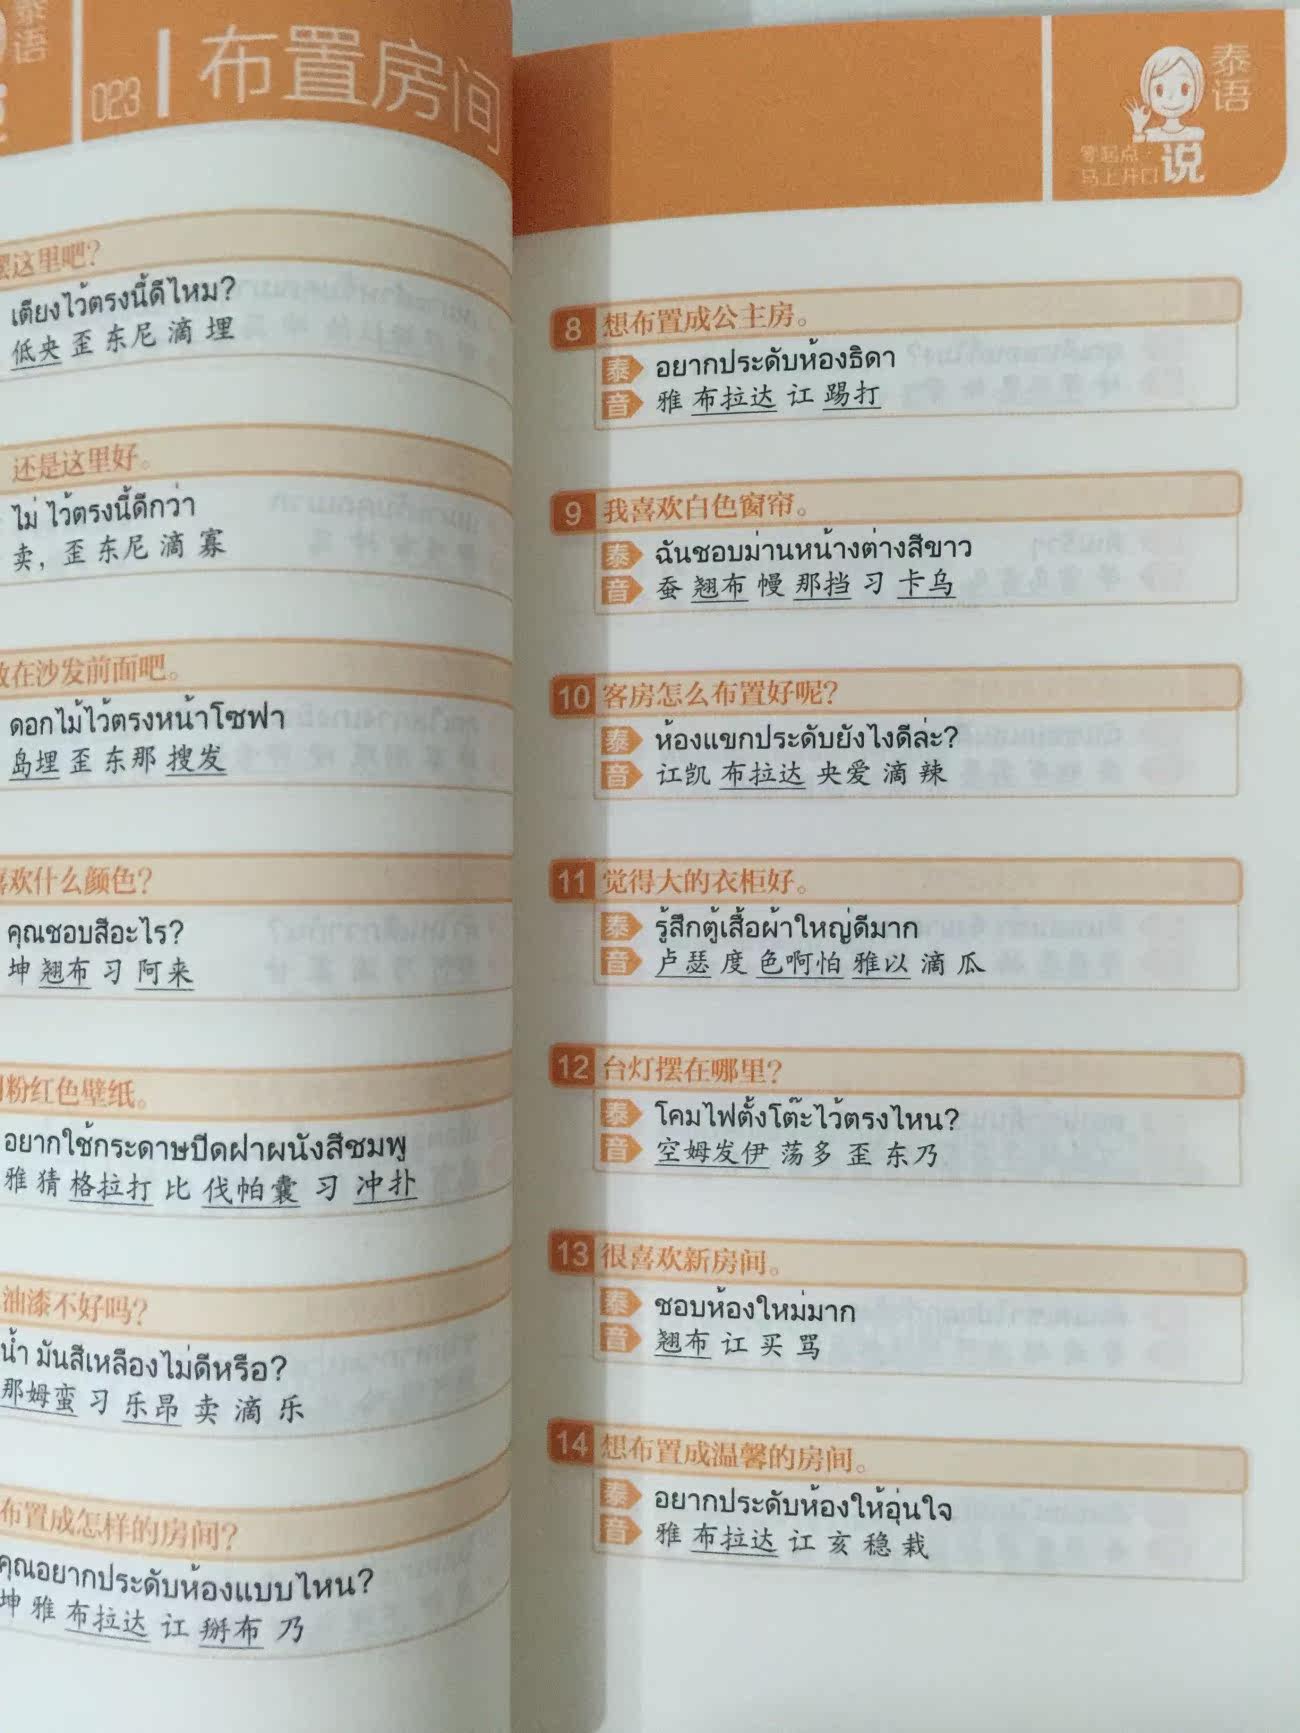 泰语
023
布置房间
摆这里吧?
เตียงไว้ตรงนี้ดีไหม?
低央 歪 东尼 滴 埋
还是这里好。
ไม่ ไว้ตรงนี้ดีกว่า
卖，歪 东尼 滴 寡
放在沙发前面吧。
ดอกไม้ไว้ตรงหน้าโซฟา
岛埋 歪 东那 搜发
喜欢什么颜色?
คุณชอบสีอะไร?
坤 翘布 习 阿来
粉红色壁纸。
อยากใช้กระดาษปิดฝาผนังสีชมพู
雅 猜 格拉打 比 伐帕囊 习 冲扑
油漆不好吗?
น้ำ มันสีเหลืองไม่ดีหรือ?
那姆蛮 习 乐昂 卖 滴 乐
布置成怎样的房间?
คุณอยากประดับห้องแบบไหน?
坤 雅 布拉达 讧 掰布 乃
泰语
零起点·
马上开口说
8 想布置成公主房。
泰 อยากประดับห้องธิดา
音 雅 布拉达 讧 踢打
9 我喜欢白色窗帘。
泰 ฉันชอบม่านหน้างต่างสีขาว
音 蚕 翘布 慢 那挡 习 卡乌
10 客房怎么布置好呢?
泰 ห้องแขกประดับยังไงดีล่ะ?
音 讧凯 布拉达 央爱 滴 辣
11 觉得大的衣柜好。
泰 รู้สึกตู้เสื้อผ้าใหญ่ดีมาก
音 卢瑟 度 色啊怕 雅以 滴 瓜
12 台灯摆在哪里?
泰 โคมไฟตั้งโต๊ะไว้ตรงไหน?
音 空姆发伊 荡多 歪 东乃
13 很喜欢新房间。
泰 ชอบห้องใหม่มาก
音 翘布 讧 买 骂
14 想布置成温馨的房间。
泰 อยากประดับห้องให้อุ่นใจ
音 雅 布拉达 讧 亥 稳 栽